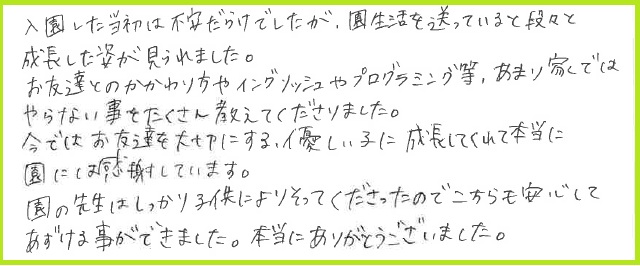 入園した当初は不安だらけでしたが、園生活を送っていると段々と
成長した姿が見られました。
お友達とのかかわり方やイングリッシュやプログラミング等、あまり家では
やらない事をたくさん教えてくださりました。
今ではお友達を大切にする、優しい子に成長してくれて本当に
園には感謝しています。
園の先生はしっかり子供によりそってくださったのでこちらも安心して
あずける事ができました。本当にありがとうございました。